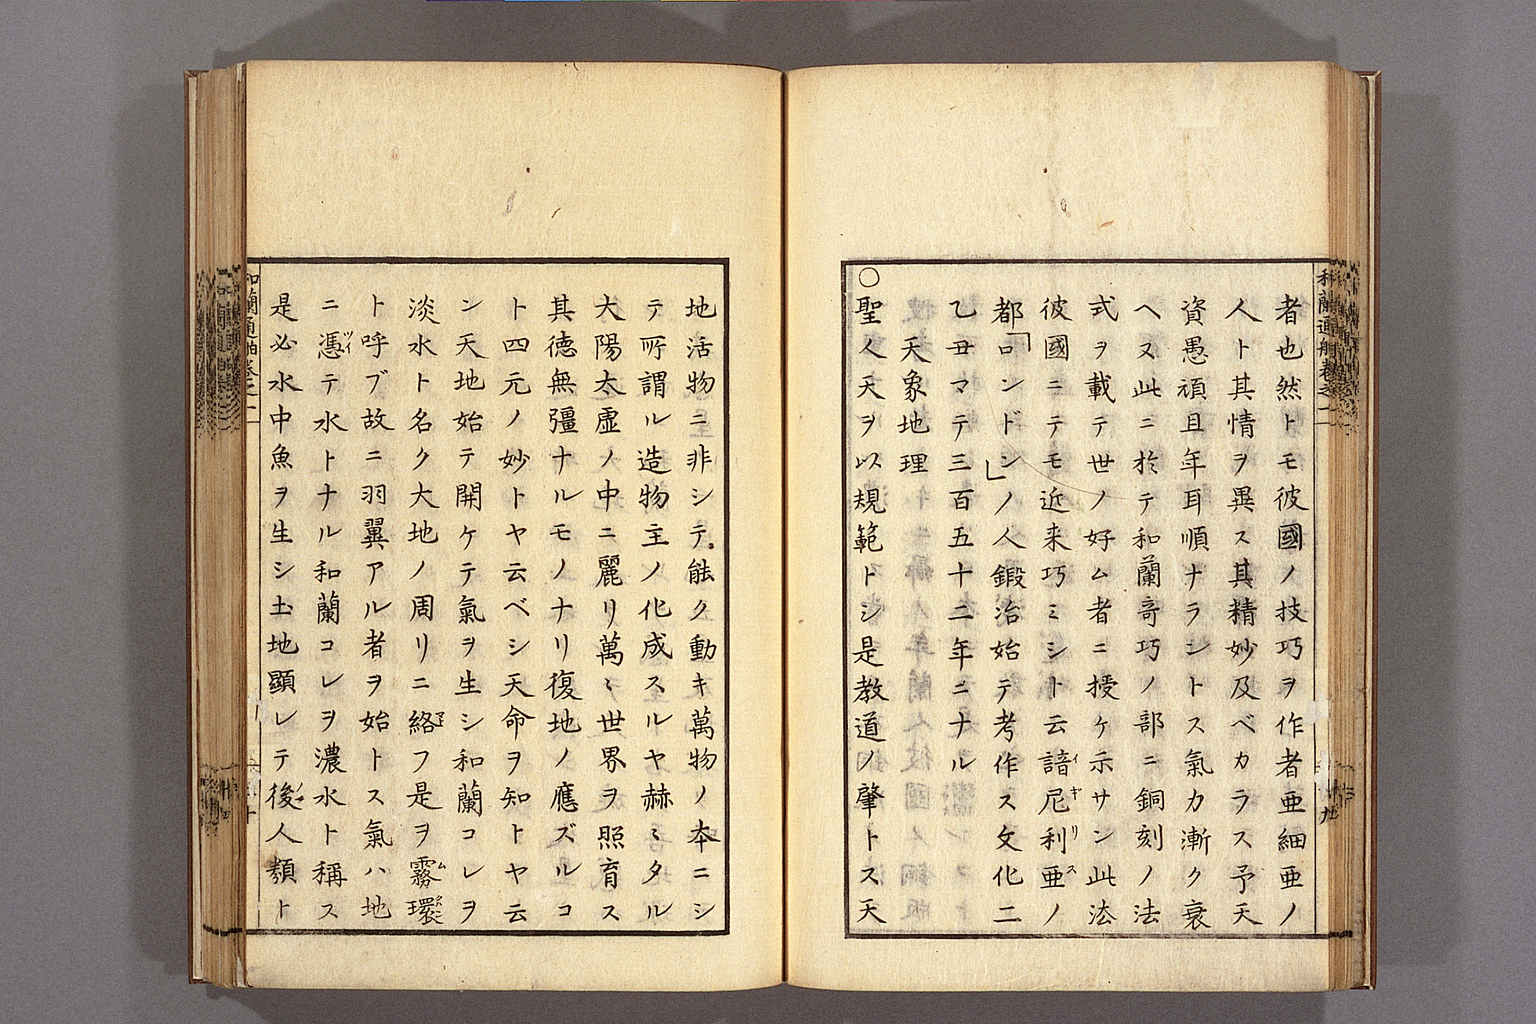 和蘭通舶巻之二
者也然トモ彼國ノ技巧ヲ作者亜細亜ノ
人ト其情ヲ異ス其精妙及ベカラス予天
資愚頑且年耳順ナラントス氣力漸ク衰
ヘヌ此ニ於テ和蘭竒巧ノ部ニ銅刻ノ法
式ヲ載テ世ノ好ム者ニ授ケ示サン此法
彼國ニテモ近来巧ミシト云諳尼利亜ノ
都「ロンドン」ノ人鍛冶始テ考作ス文化二
乙丑マテ三百五十二年ニナル
天象地理
○聖人天ヲ以規範トシ是教道ノ肇トス天
地活物ニ非シテ能ク動キ萬物ノ本ニシ
テ所謂ル造物主ノ化成スルヤ赫ミタル
大陽太虚ノ中ニ麗リ萬〻世界ヲ照育ス
其徳無彊ナルモノナリ復地ノ應ズルコ
ト四元ノ妙トヤ云ベシ天命ヲ知トヤ云
ン天地始テ開ケテ氣ヲ生シ和蘭コレヲ
淡水ト名ク大地ノ周リニ絡フ是ヲ霧環
ト呼ブ故ニ羽翼アル者ヲ始トス氣ハ地
ニ憑テ水トナル和蘭コレヲ濃水ト稱ス
是必水中魚ヲ生シ土地顕レテ後人類ト
和蘭通舶巻之二